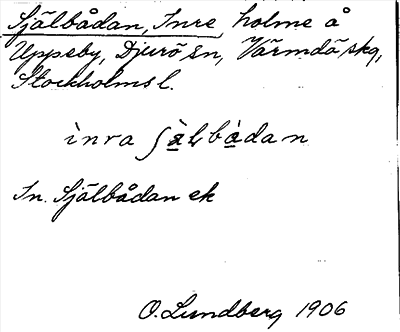 Själbådan, Inre, holme å
Uppeby, Djurö sn, Värmdö skg,
Stockholms l.
inra ʃä̀lbå̀dan
In. Själbådan ek
O. Lundberg 1906